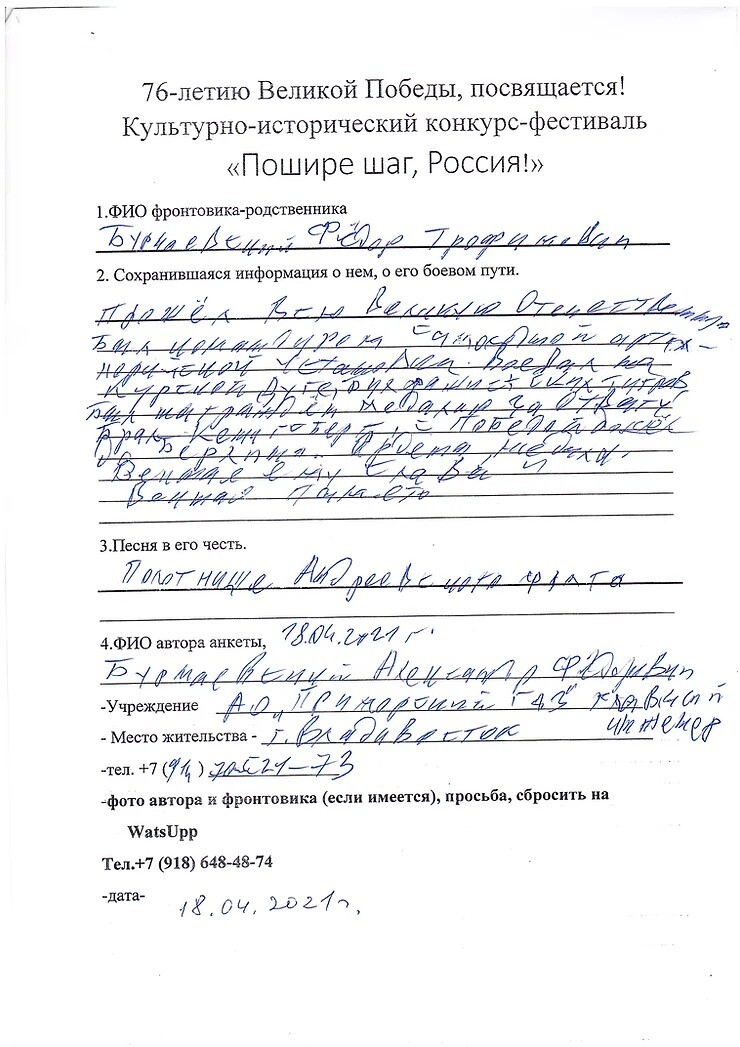 76-летию Великой Победы, посвящается!
Культурно-исторический конкурс-фестиваль
«Пошире шаг, Россия!»
1.ФИО фронтовика-родственника
Фёдор Трофимович
2. Сохранившаяся информация о нем, о его боевом пути.
Прошёл Всю Великую Отечественную
Был командиром Самоходной артил-
лерийской Установки. Воевал на
Курской Дуге,
Был награждён медалью за Отвагу
Брал Кенигсберг, с Победой дошёл
до Берлина. Ордена, медали.
Вечная ему Слава и
Вечная Память
3.Песня в его честь.
Полотнище Андреевского флага
4.ФИО автора анкеты, 18.04.2021 г.
Александр Фёдорович
-Учреждение АО "Приморский ГАЗ" главный
инженер
- Место жительства - г. Владивосток
-тел. +7
-фото автора и фронтовика (если имеется), просьба, сбросить на
WatsUpp
Тел.+7 (918) 648-48-74
-дата- 18.04.2021г.